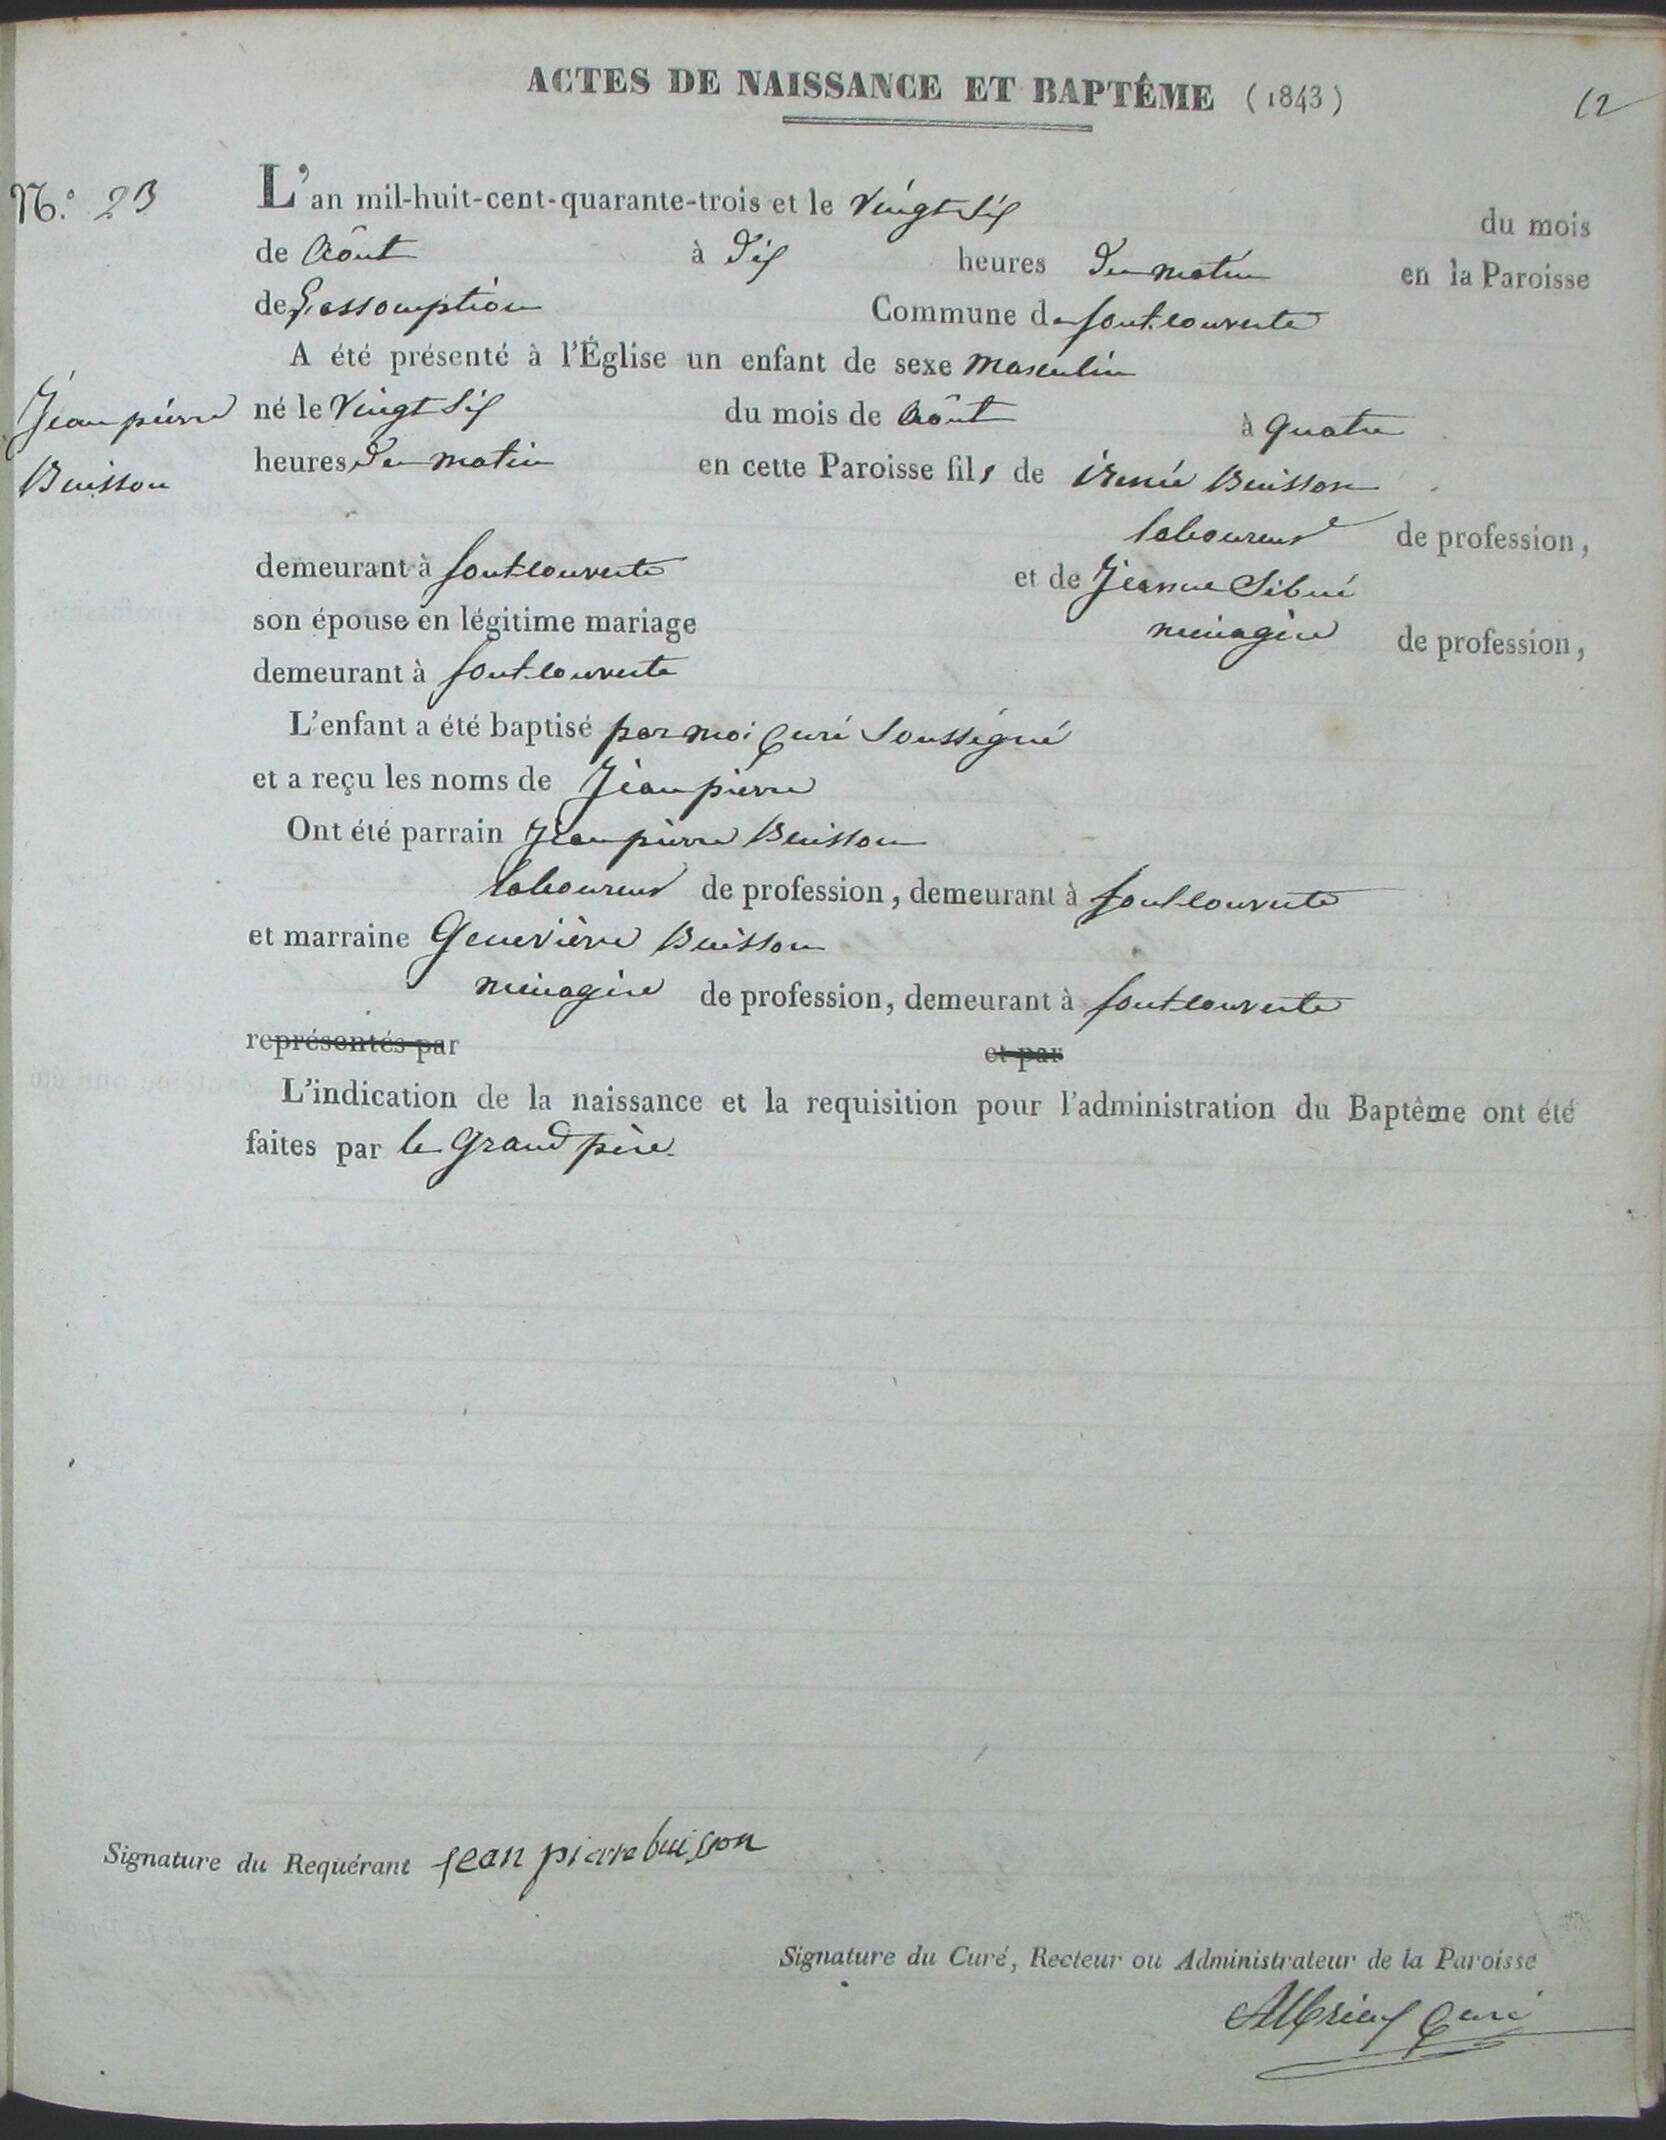 ACTES DE NAISSANCE ET BAPTÊME (1843)
12
N.° 23
L'an mil-huit-cent-quarante-trois et le vingt six du mois
de Août à dix heures du matin en la Paroisse
de L'assomption Commune de fontcouverte
A été présenté à l'Église un enfant de sexe masculin
Jean pierre Buisson
né le vingt six du mois de Août à quatre
heures du matin en cette Paroisse fils de irénée Buisson
laboureur de profession,
demeurant à fontcouverte et de Jeanne Sibué
son épouse en légitime mariage ménagère de profession,
demeurant à fontcouverte
L'enfant a été baptisé par moi Curé Soussigné
et a reçu les noms de Jean pierre
Ont été parrain Jean pierre Buisson
laboureur de profession, demeurant à fontcouverte
et marraine Geneviève Buisson
ménagère de profession, demeurant à fontcouverte
représentés par et par
L'indication de la naissance et la requisition pour l'administration du Baptême ont été
faites par le grand père.
Signature du Requérant jean pierre buisson
Signature du Curé, Recteur ou Administrateur de la Paroisse
Curé